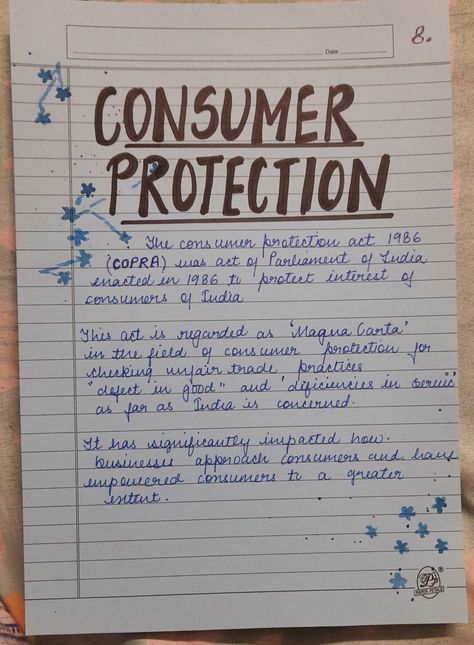 8.
Date
CONSUMER
PROTECTION
The consumer protection act 1986
(COPRA) was act of Parliament of India
enacted in 1986 to protect interest of
consumers of India
This act is regarded as 'Magna Carta'
in the field of consumer protection for
checking unfair trade practices
"defect in good" and 'dificiencies in servic'
as far as India is concerned.
It has significantly impacted how.
businesses approach consumers and have
empowered consumers to a greater
entent.
PAPER PETALS